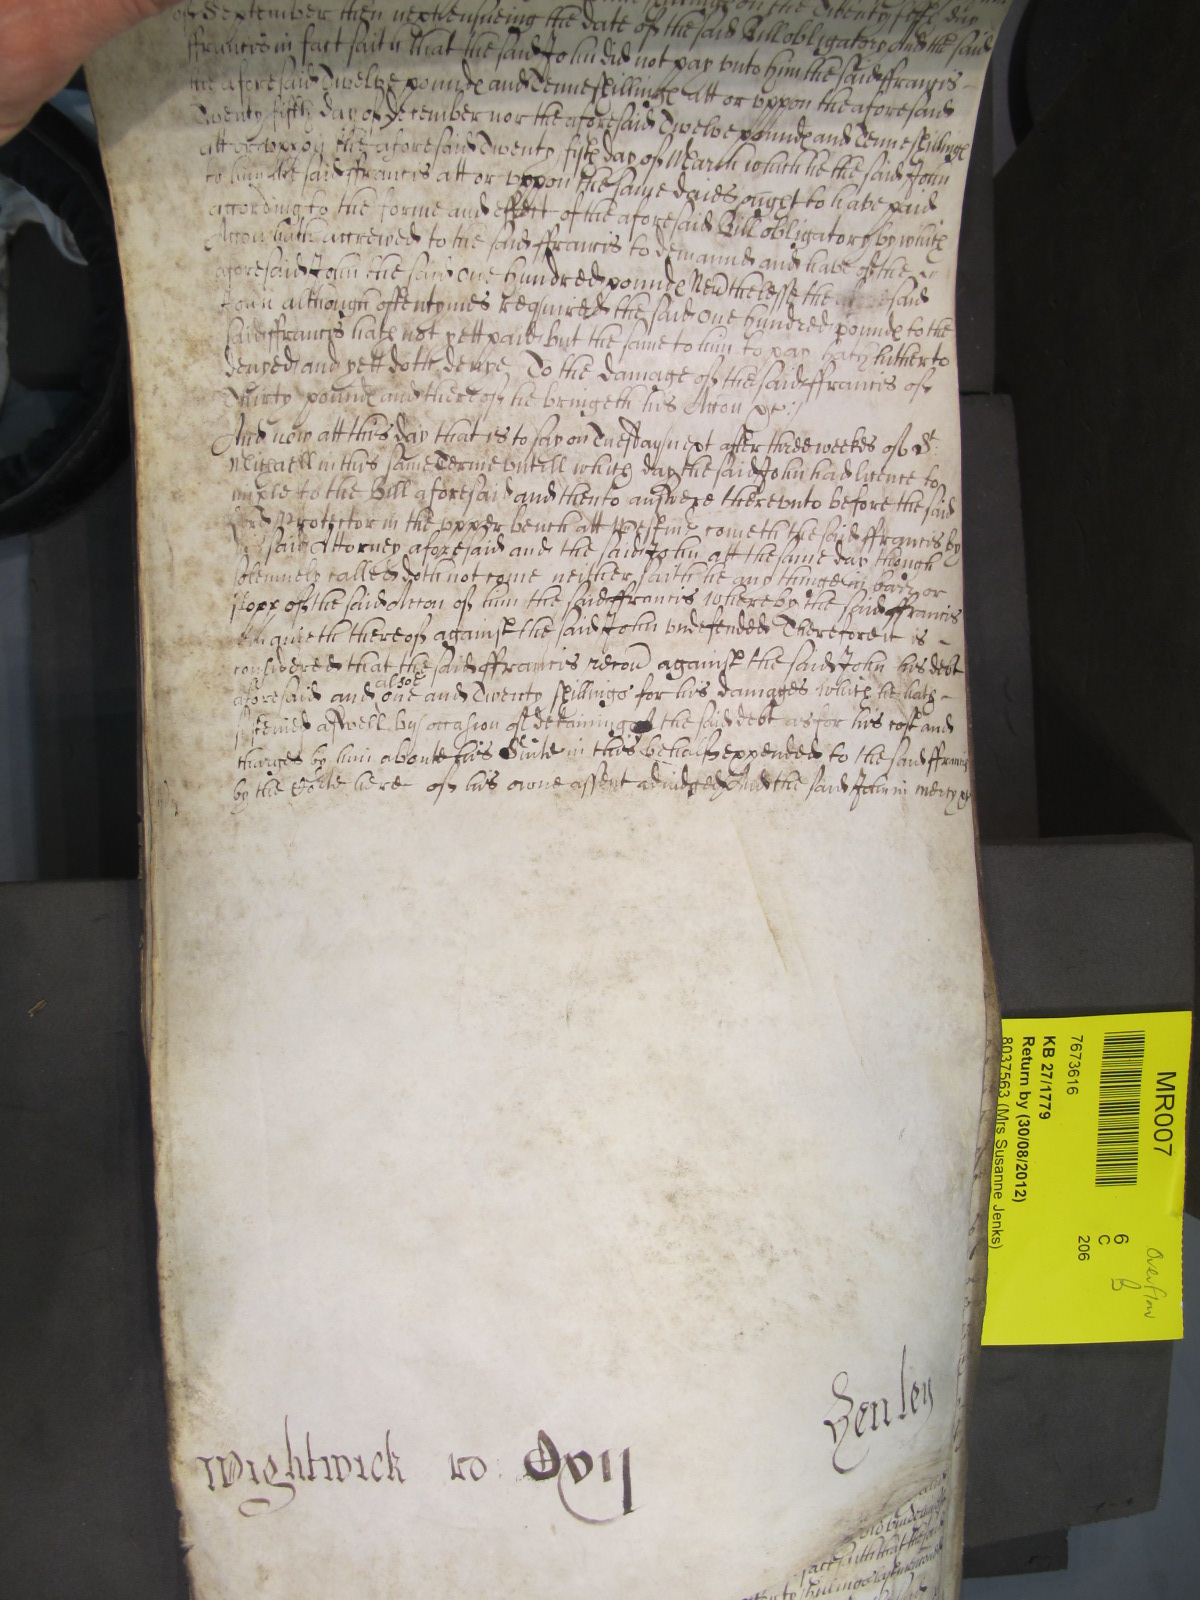 of September then next ensueing the date of the said Bill obligatory And the said
ffrancis in fact saith that the said John did not pay unto him the said ffrancis
the aforesaid Twelve pounds and Tenne shillings att or uppon the aforesaid
Twenty fifth day of December nor the aforesaid Twelve pounds and Tenne shillings
att or uppon the aforesaid Twenty fifth day of March which he the said John
to him the said ffrancis att or uppon the same daies ought to have paid
according to the forme and effect of the aforesaid Bill obligatory by which
Accon hath accrewed to the said ffrancis to demannd and have of the
aforesaid John the said One hundred pounds Nevthelesse the aforesaid
John although oftentymes required the said One hundred pounds to the
said ffrancis hath not yett paid but the same to him to pay hath hitherto
denyed and yett doth denye To the damage of the said ffrancis of
Thirty pounds and thereof he bringeth his Accon &c
And now att this day that is to say on Tuesday next after three weekes of St
Michaell in this same Terme untill which day the said John had licence to
imple to the Bill aforesaid and then to answere thereunto before the said
Lord Protector in the upper bench att Westmr cometh the said ffrancis by
his said Attorney aforesaid and the said John att the same day though
solemnely called doth not come neither saith he any thinge in barr or
stopp of the said Accon of him the said ffrancis Whereby the said ffrancis
thereof against the said John undefended Therefore it is
considered that the said ffrancis recov against the said John his debt
aforesaid and also one and Twenty shillings for his damages which he hath
susteined aswell by occasion of detaining of the said debt as for his cost and
charges by him aboute his Suite in this behalf expended to the said ffrancis
by the Court here of his owne assent adiudged And the said John in mercy &c
Henley
Wightwick ro Dvij
MR007
7673616
KB 27/1779
Return by (30/08/2012)
8037563 (Mrs Susanne Jenks)
6
C
206
Overflow
B